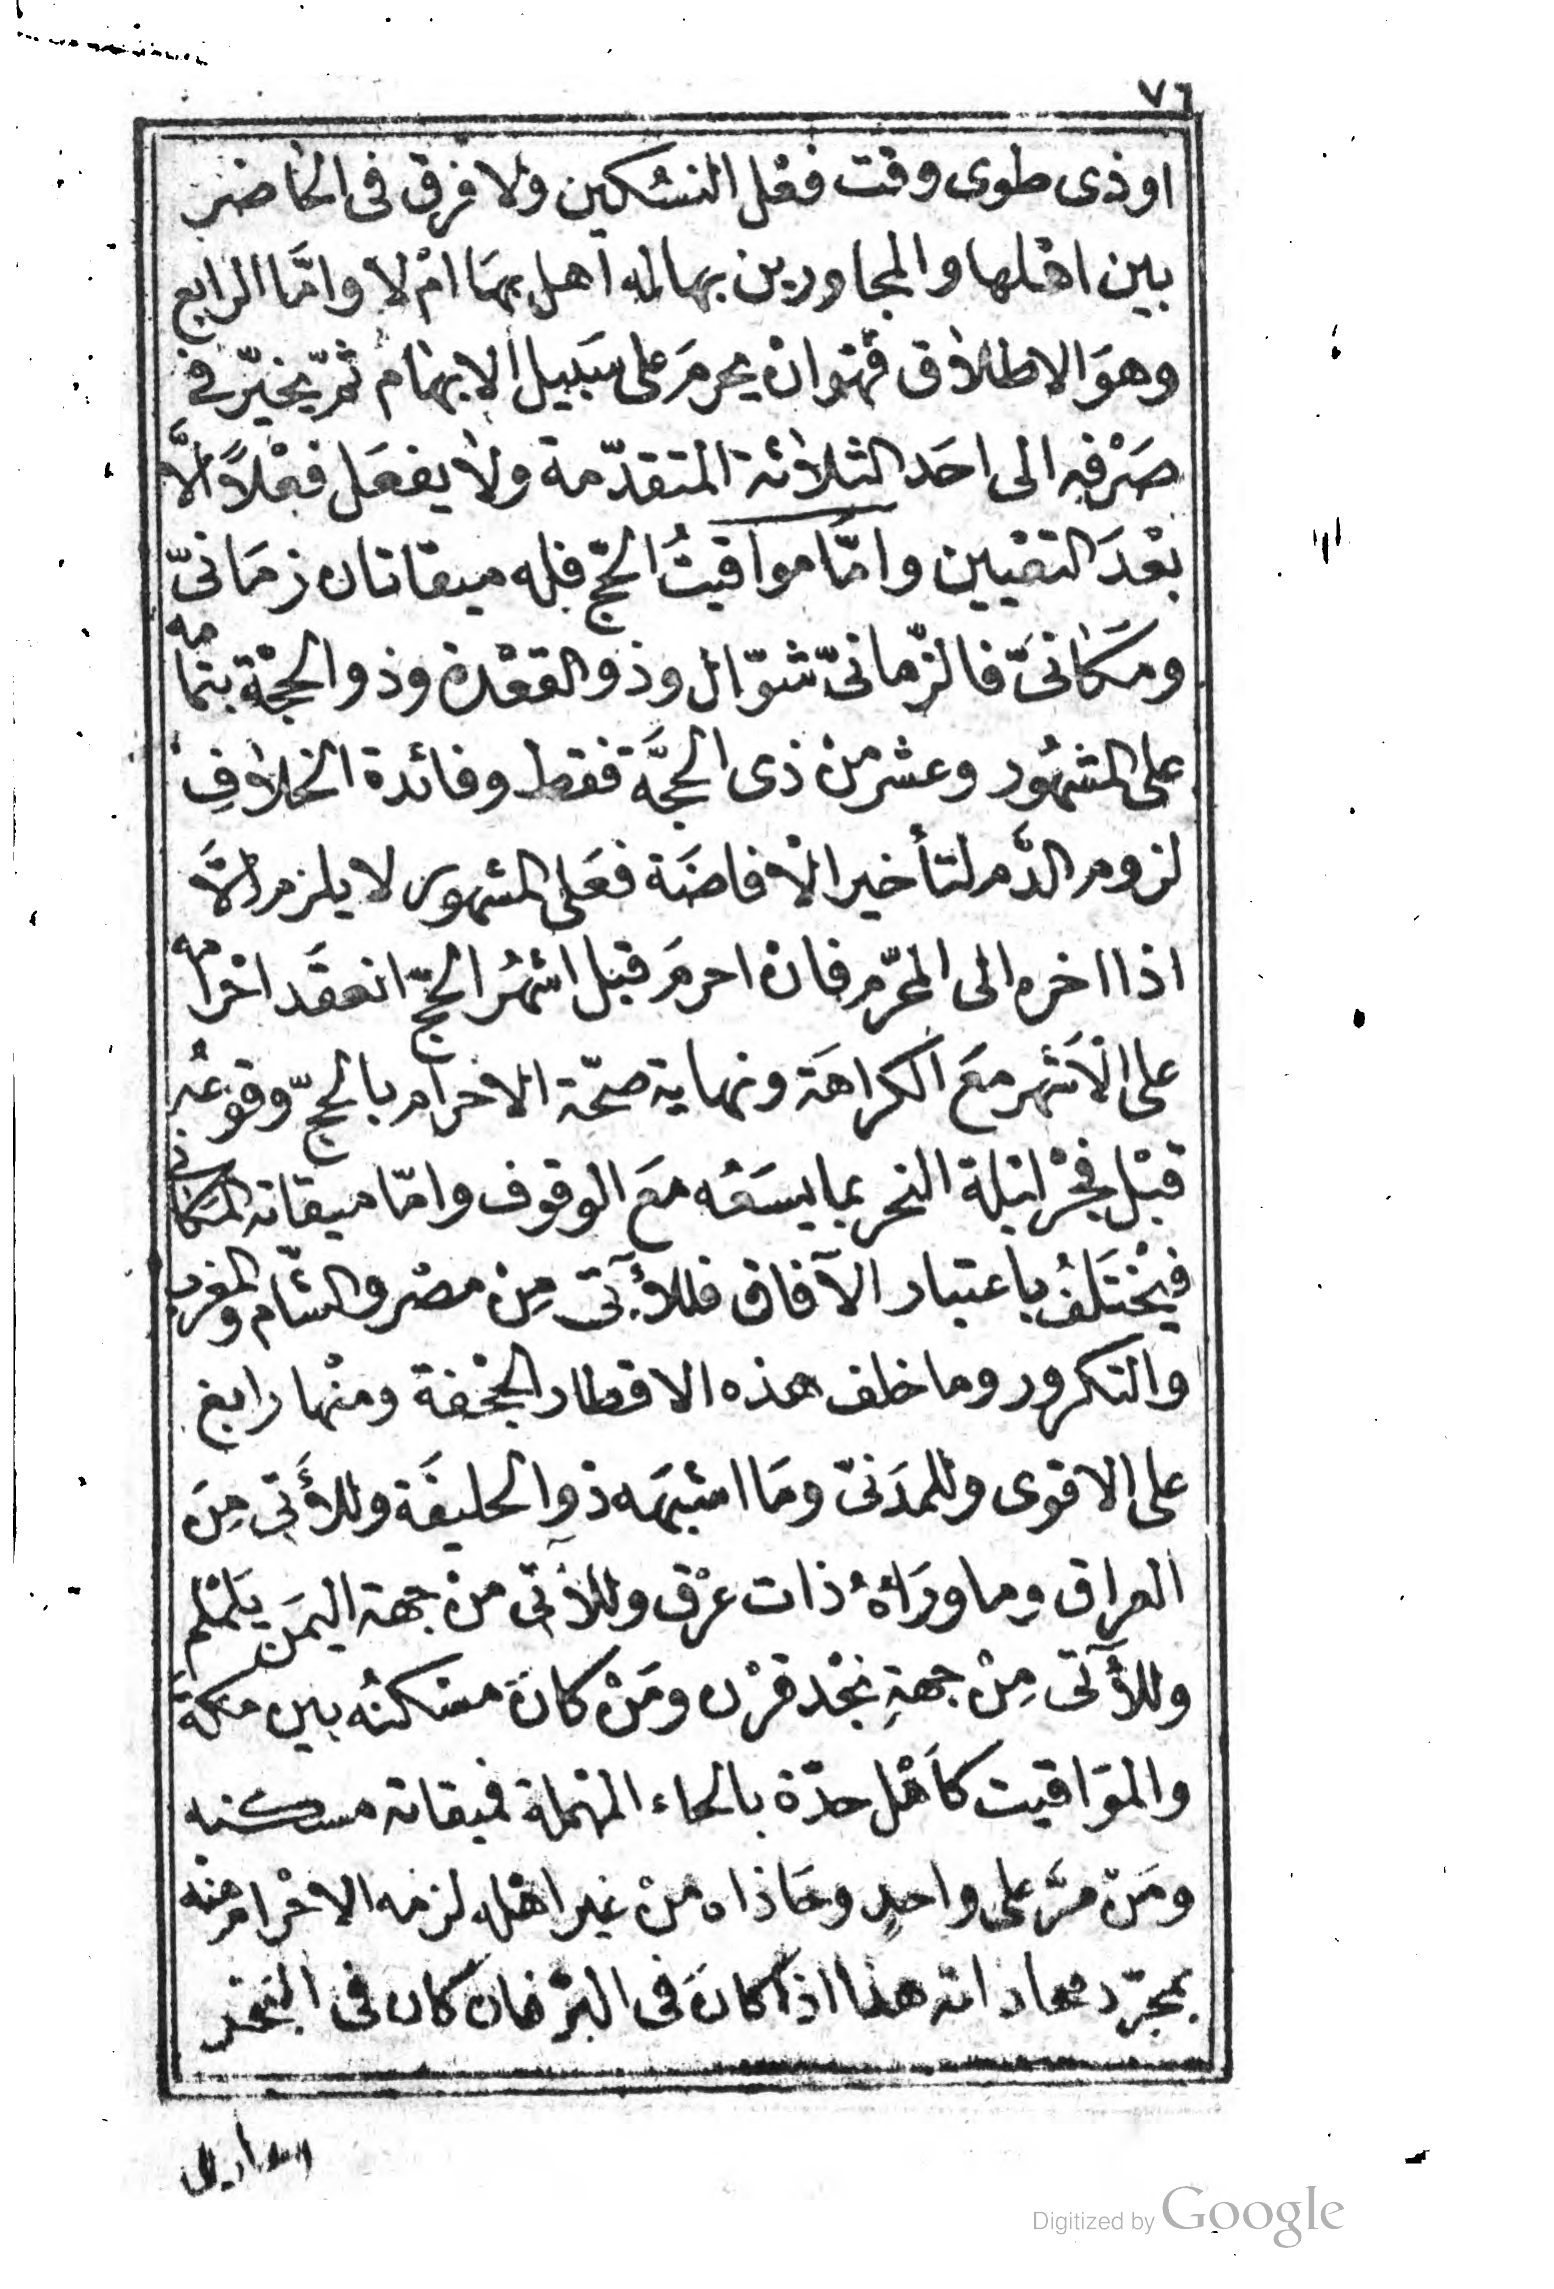 ٧٦
او ذى طوى وقت فعْل النسُكين ولا فرق فى الحاضر
بين اهْلها والمجاورين بها له اهل بهَا امْ لا وامَّا الرابع
وهوَ الاطلاق فهْو ان يحرمَ على سَبيل الابهام ثمّ يخيّر فى
صَرْفه الى احَد الثلاثة المتقدّمة ولا يفعَل فعْلاً الَّا
بعْدَ التعْيين وامَّا مواقيتُ الحجّ فله ميقاتان زمَانىّ
ومكَانىّ فالزّمانىّ شوّال وذو القعْدة وذو الحجّة بتمامه
على المشهُور وعشر من ذى الحجَّة فقط وفائدة الخلاف
لزوم الدَّم لتأخير الافاضَة فعَلى المشهور لا يلزم الَّا
اذا اخره الى المحرّم فان احرمَ قبل اشهُر الحجّ انعقَد احْرامه
على الأشهر معَ الكراهَة ونهاية صحّة الاحرام بالحجّ وقوعُه
قبْل فجْر ليْلة النحر بما يسَعُه معَ الوقوف وامّا ميقاته المكانى
فيخْتَلفُ باعتبار الآفاق فللآتى مِن مصْر والشّام والمغرب
والتكرور وما خلف هذه الاقطار الجحْفة ومنْها رابغ
على الاقوى وللمدَنىّ ومَا اشبهَه ذو الحليفَة وللآتى مِنَ
العراق وما ورَاءهُ ذات عرْق وللآتى منْ جهة اليمَن يَلمْلم
وللآتى مِنْ جهةِ نجْد قرْن ومَنْ كانَ مسْكنُه بين مكة
والموَاقيت كأهْل حدّة بالحاء المهْملة فميقاته مسكنه
ومَنْ مرَّ على واحدٍ وحَاذاه منْ غير اهْله لزمه الاحْرام منْه
بمجرّد محاذاته هذا اذا كانَ فى البرّ فان كان فى البَحْر